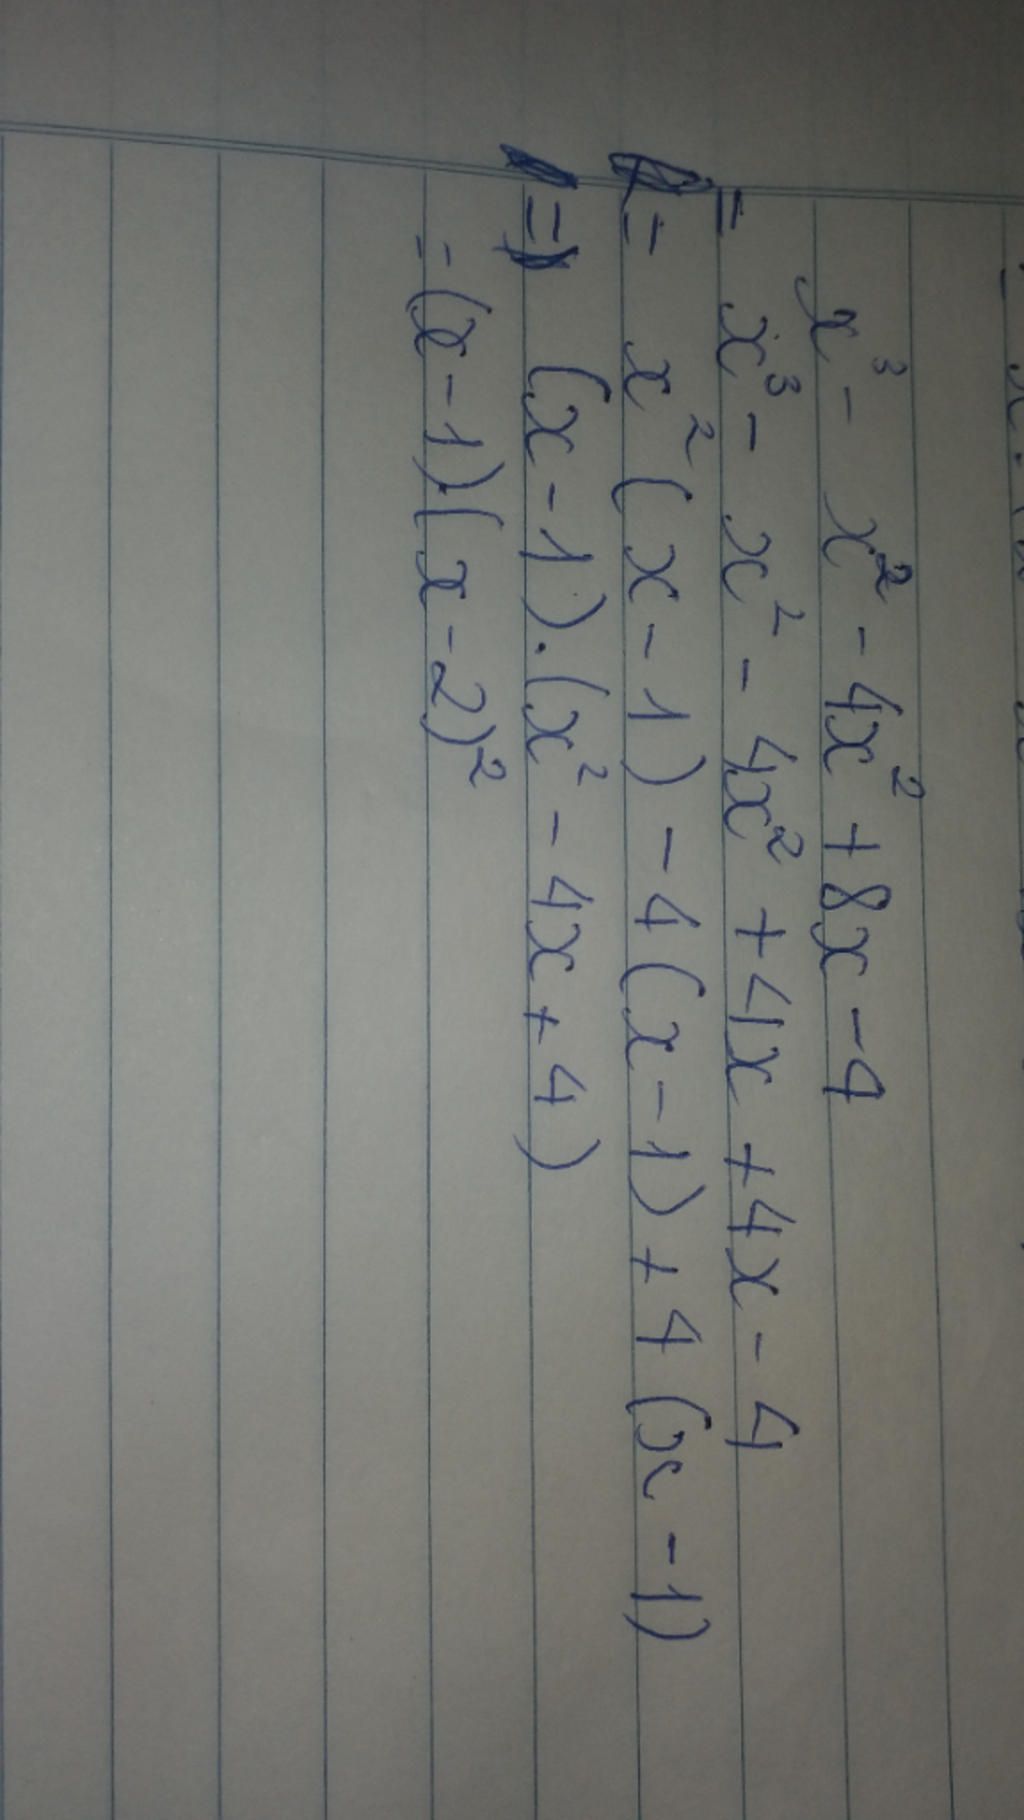 x³ - x² - 4x² + 8x - 4
= x³ - x² - 4x² + 4x + 4x - 4
= x² (x - 1) - 4 (x - 1) + 4 (x - 1)
= (x - 1) . (x² - 4x + 4)
= (x - 1) . (x - 2)²